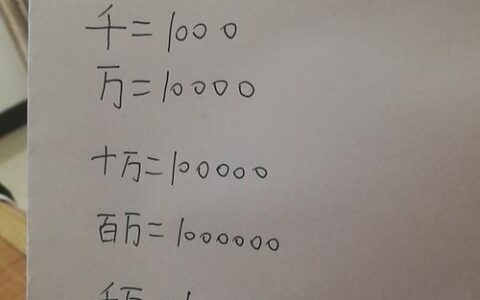 千=1000
万=10000
十万=100000
百万=1000000
千万=1